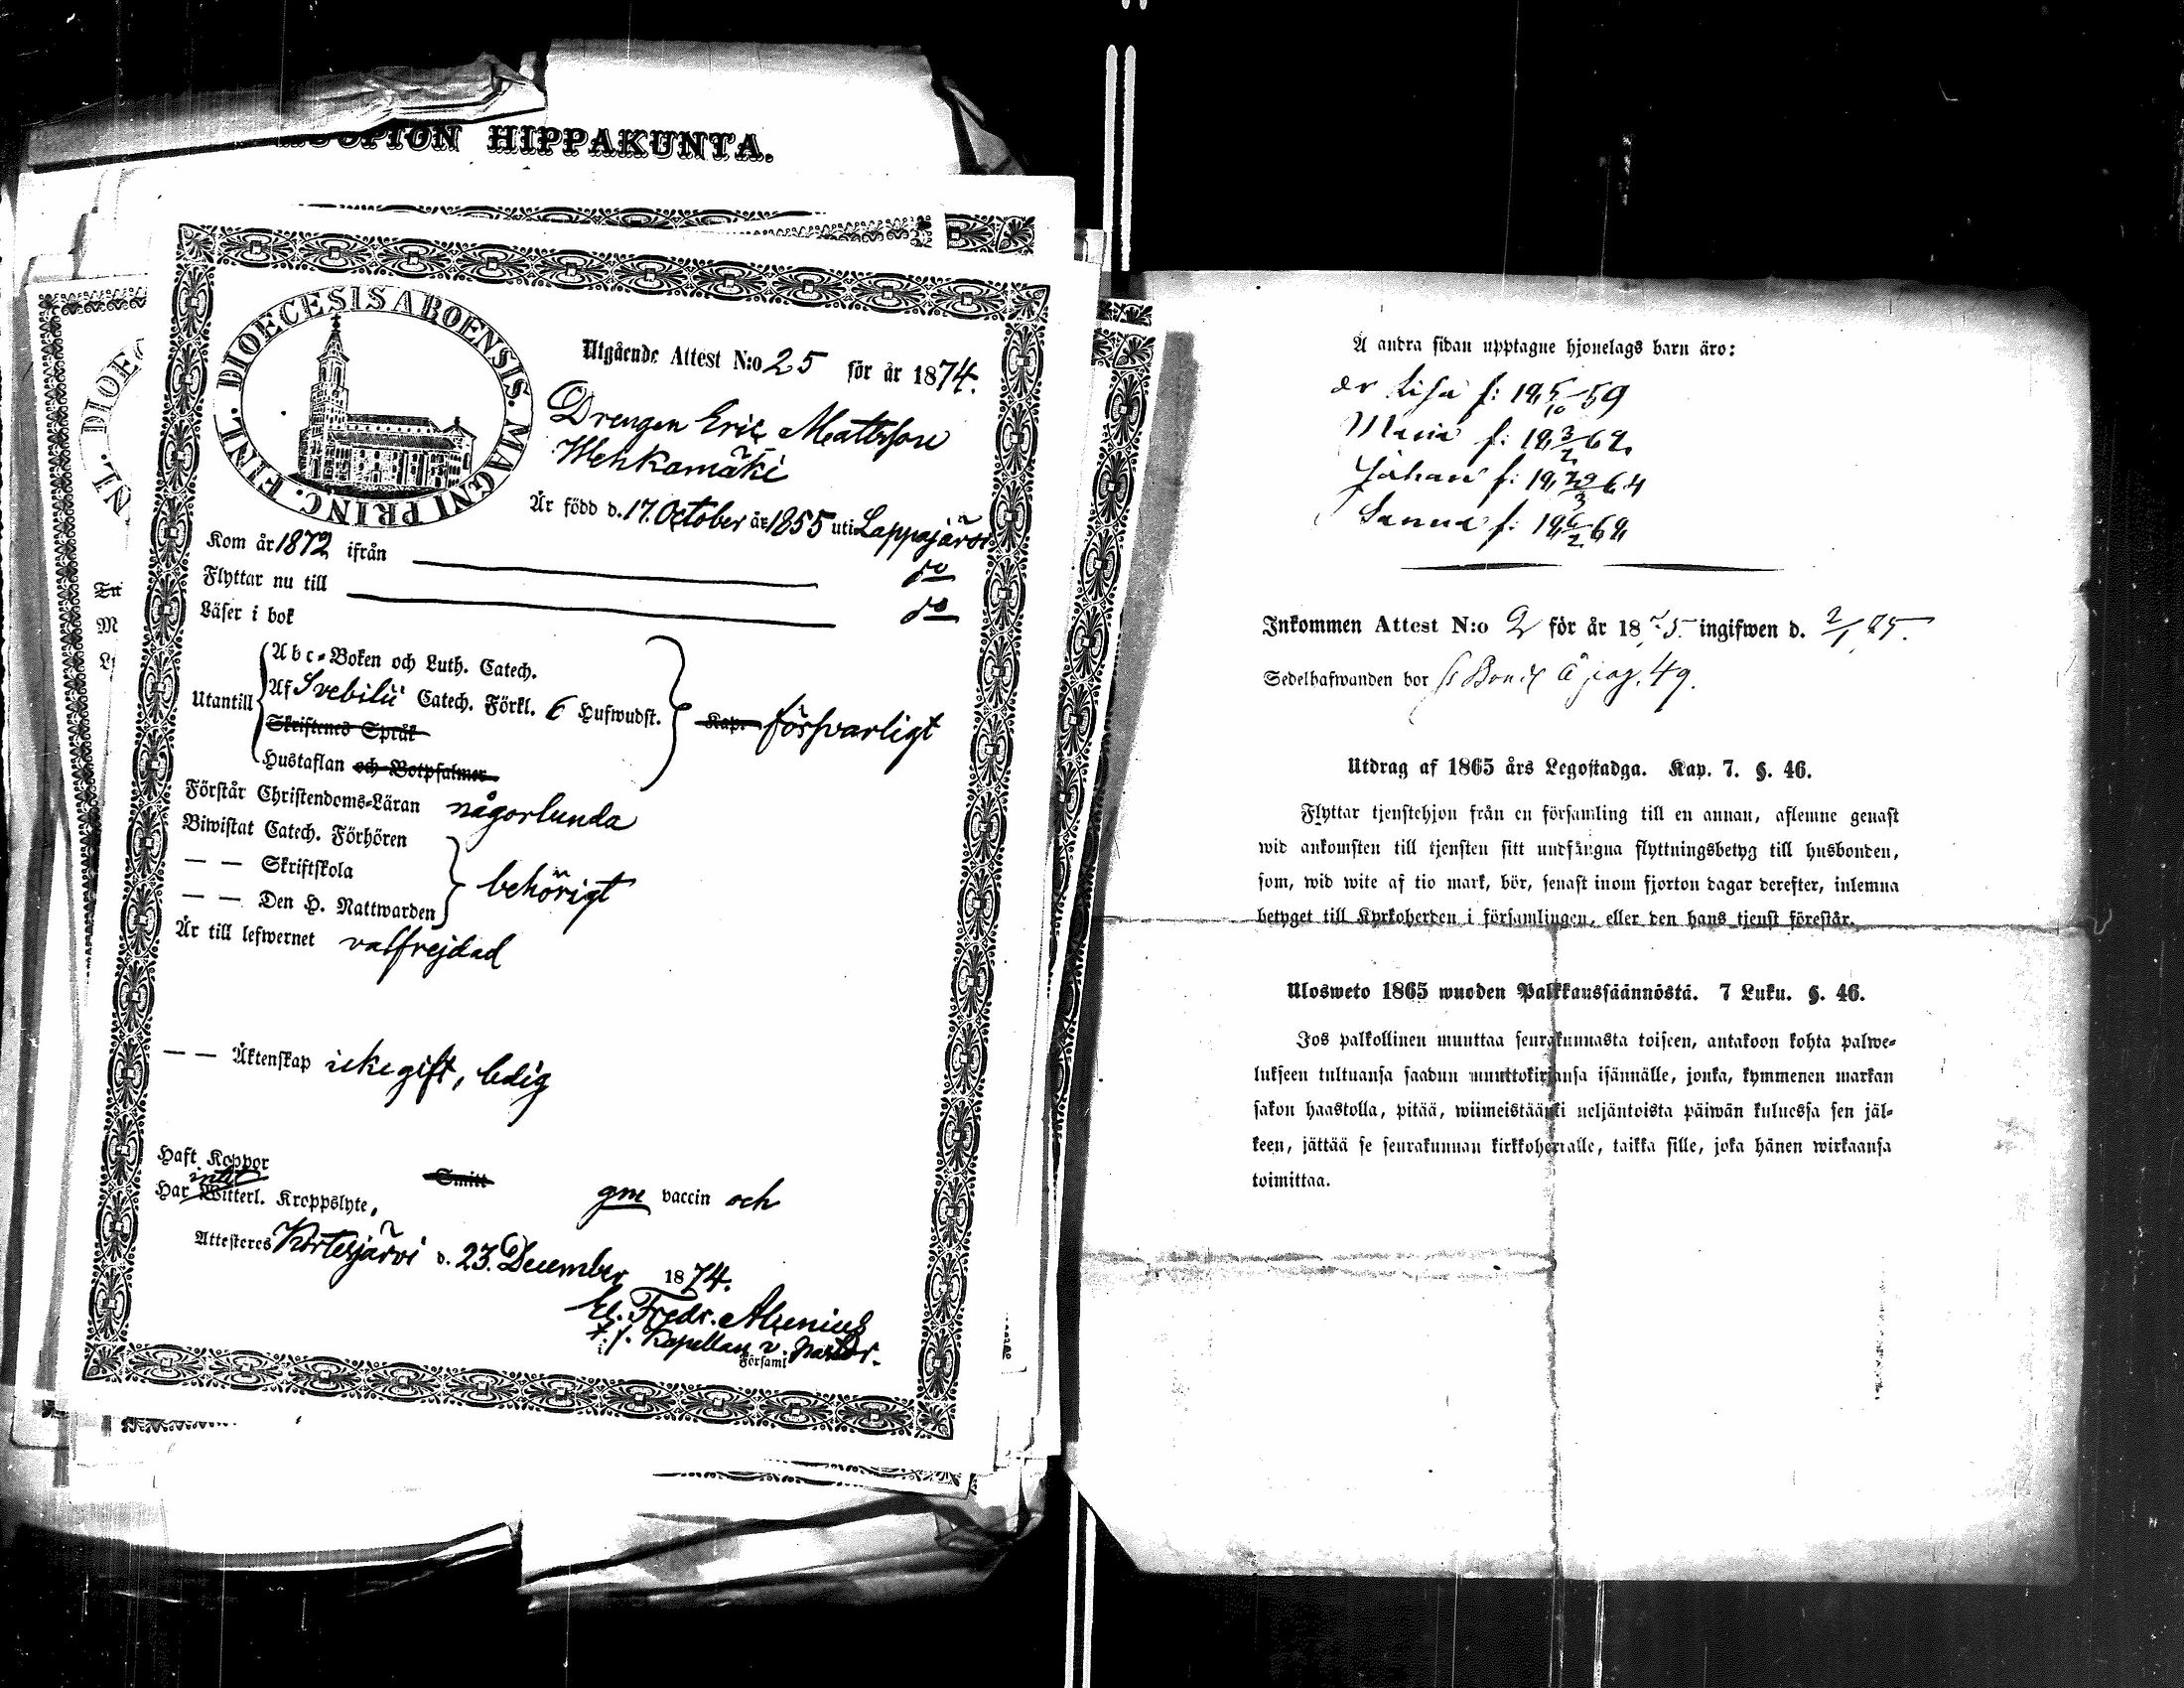 HIPPAKUNTA.
DIOECESIS ABOENSIS. MAGNI PRINC. FINL.
Utgående Attest N:o 25 för år 1874.
Drengen Eric Mattsson
Wehkamäki
Är född d. 17. October år 1855 uti Lappajärvi
Kom år 1872 ifrån do
Flyttar nu till do
Läser i bok
Abc-Boken och Luth. Catech.
Utantill Af Svebilii Catech. Förkl. 6 Hufwudst. Kap. försvarligt
Skriftenes Språk
Hustaflan och Botpsalmer
Förstår Christendoms-Läran någorlunda
Biwistat Catech. Förhören
— — Skriftskola behörigt
— — Den H. Nattwarden
Är till lefwernet välfrejdad
— — Äktenskap icke gift, ledig
Haft Koppor Smitt gm vaccin och
Har Witterl. intet Kroppslyte,
Attesteres Kortesjärvi d. 23. December 1874.
El. Fredr. Alcenius
t. f. Kapellan v. Pastor.
Församl
Å andra sidan upptagne hjonelags barn äro:
Maria
Johan
Sanna
Inkommen Attest N:o 2 för år 1875 ingifwen d. 2/1 75.
Sedelhafwanden bor pag. 49.
Utdrag af 1865 års Legostadga. Kap. 7. §. 46.
Flyttar tjenstehjon från en församling till en annan, aflemne genast
wid ankomsten till tjensten sitt undfångna flyttningsbetyg till husbonden,
som, wid wite af tio mark, bör, senast inom fjorton dagar derefter, inlemna
betyget till Kyrkoherden i församlingen, eller den hans tjenst förestår.
Ulosweto 1865 wuoden Palkkaussäännöstä. 7 Luku. §. 46.
Jos palkollinen muuttaa seurakunnasta toiseen, antakoon kohta palwe-
lukseen tultuansa saadun muuttokirjansa isännälle, jonka, kymmenen markan
sakon haastolla, pitää, wiimeistäänki neljäntoista päiwän kuluessa sen jäl-
keen, jättää se seurakunnan kirkkoherralle, taikka sille, joka hänen wirkaansa
toimittaa.